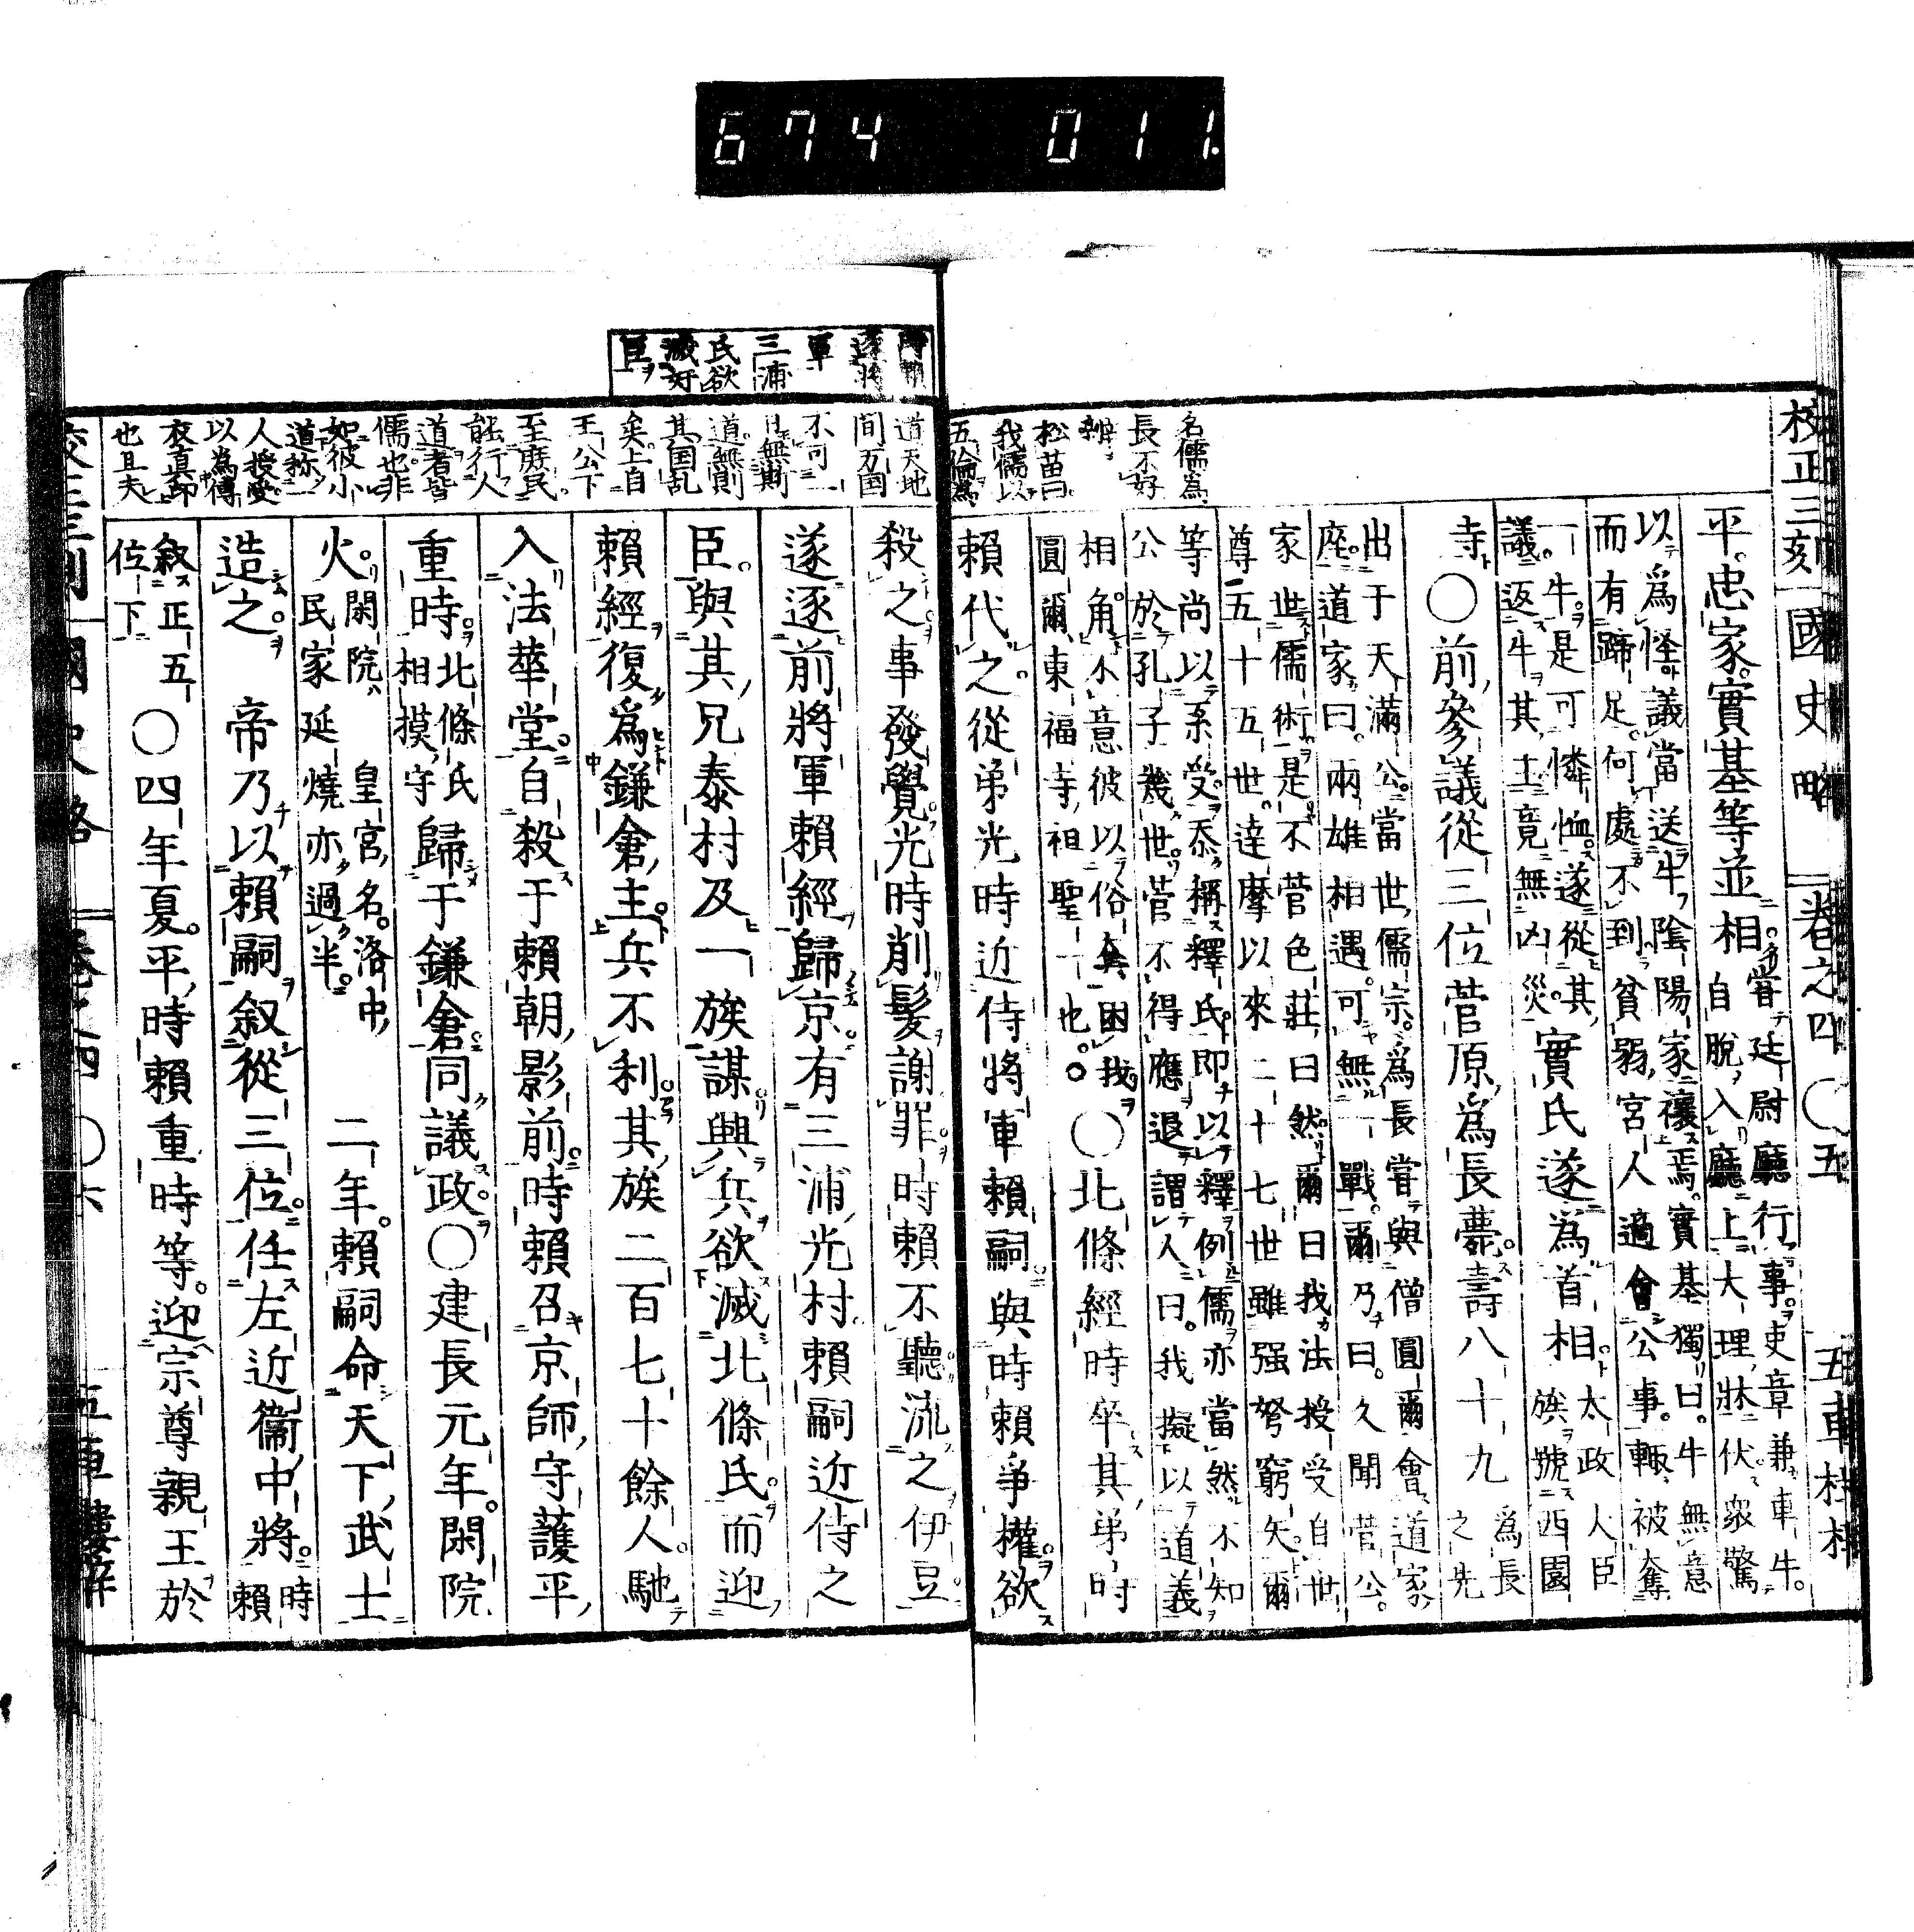 674 011
校正三刻 國史略 卷之四 〇五 五車
平忠家實基等並相
嘗廷尉廳行事吏章兼車牛
自脫入廳上大理牀伏衆驚
以爲怪議當送牛陰陽家禳焉實基獨曰牛無意
而有蹄足何處不到貧弱宮人適會公事輙被奪
一牛是可憐恤遂從其
議返牛其主竟無凶災
實氏遂爲首相
太政人臣
族號西園
寺
〇前參議從三位菅原爲長薨壽八十九
爲長
之先
出于天滿公當世儒宗爲長嘗與僧圓爾會道家
座道家曰兩雄相遇可無一戰爾乃曰久聞菅公
家世儒術是不菅色莊曰然爾曰我法授受自世
尊五十五世達摩以來二十七世雖强弩窮矢爾
等尚以系受忝稱釋氏即以釋例儒亦當然不知
公於孔子幾世菅不得應退謂人曰我擬以道義
相角不意彼以俗套困我
圓爾東福寺祖聖一也
〇北條經時卒其弟時
賴代之從弟光時近侍將軍賴嗣與時賴爭權欲
名儒爲
長不好
辨
松苗曰
我儒以
五倫爲
殺之事發覺光時削髮謝罪時賴不聽流之伊豆
遂逐前將軍賴經歸京有三浦光村賴嗣近侍之
臣與其兄泰村及一族謀興兵欲滅北條氏而迎
賴經復爲鎌倉主兵不利其族二百七十餘人馳
入法華堂自殺于賴朝影前時賴召京師守護平
重時
北條氏
相摸守
歸于鎌倉同議政〇建長元年閑院
火
閑院皇宮名洛中
民家延燒亦過半
二年賴嗣命天下武士
造之 帝乃以賴嗣叙從三位任左近衞中將
時
賴
叙正五
位下
〇四年夏平時賴重時等迎宗尊親王於
三浦
氏欲
滅奸
臣
道天地
間万国
不可一
日無斯
道無則
其国乱
矣上自
王公下
至庶民
能行人
道者皆
儒也非
如彼小
道称一
人授受
以為傳
衣真印
也且夫